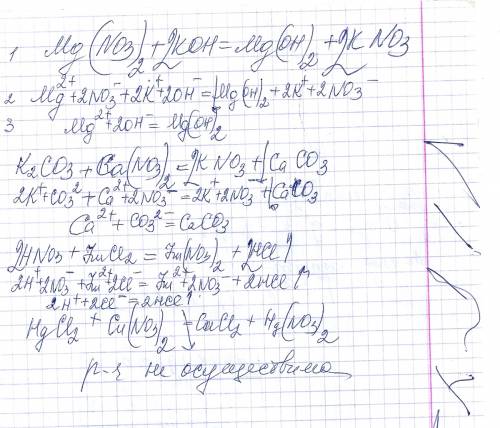 1 Mg(NO3)2 + 2KOH = Mg(OH)2 + 2KNO3
2 Mg²⁺ + 2NO3⁻ + 2K⁺ + 2OH⁻ = ↓Mg(OH)2 + 2K⁺ + 2NO3⁻
3 Mg²⁺ + 2OH⁻ = Mg(OH)2
K2CO3 + Ca(NO3)2 = 2KNO3 + ↓CaCO3
2K⁺ + CO3² + Ca²⁺ + 2NO3⁻ = 2K⁺ + 2NO3⁻ + ↓CaCO3
Ca²⁺ + CO3²⁻ = CaCO3
2HNO3 + ZnCl2 = Zn(NO3)2 + 2HCl↑
2H⁺ + 2NO3⁻ + Zn²⁺ + 2Cl⁻ = Zn²⁺ + 2NO3⁻ + 2HCl↑
2H⁺ + 2Cl⁻ = 2HCl↑
HgCl2 + Cu(NO3)2 = CuCl2 + Hg(NO3)2
р-я не осуществима